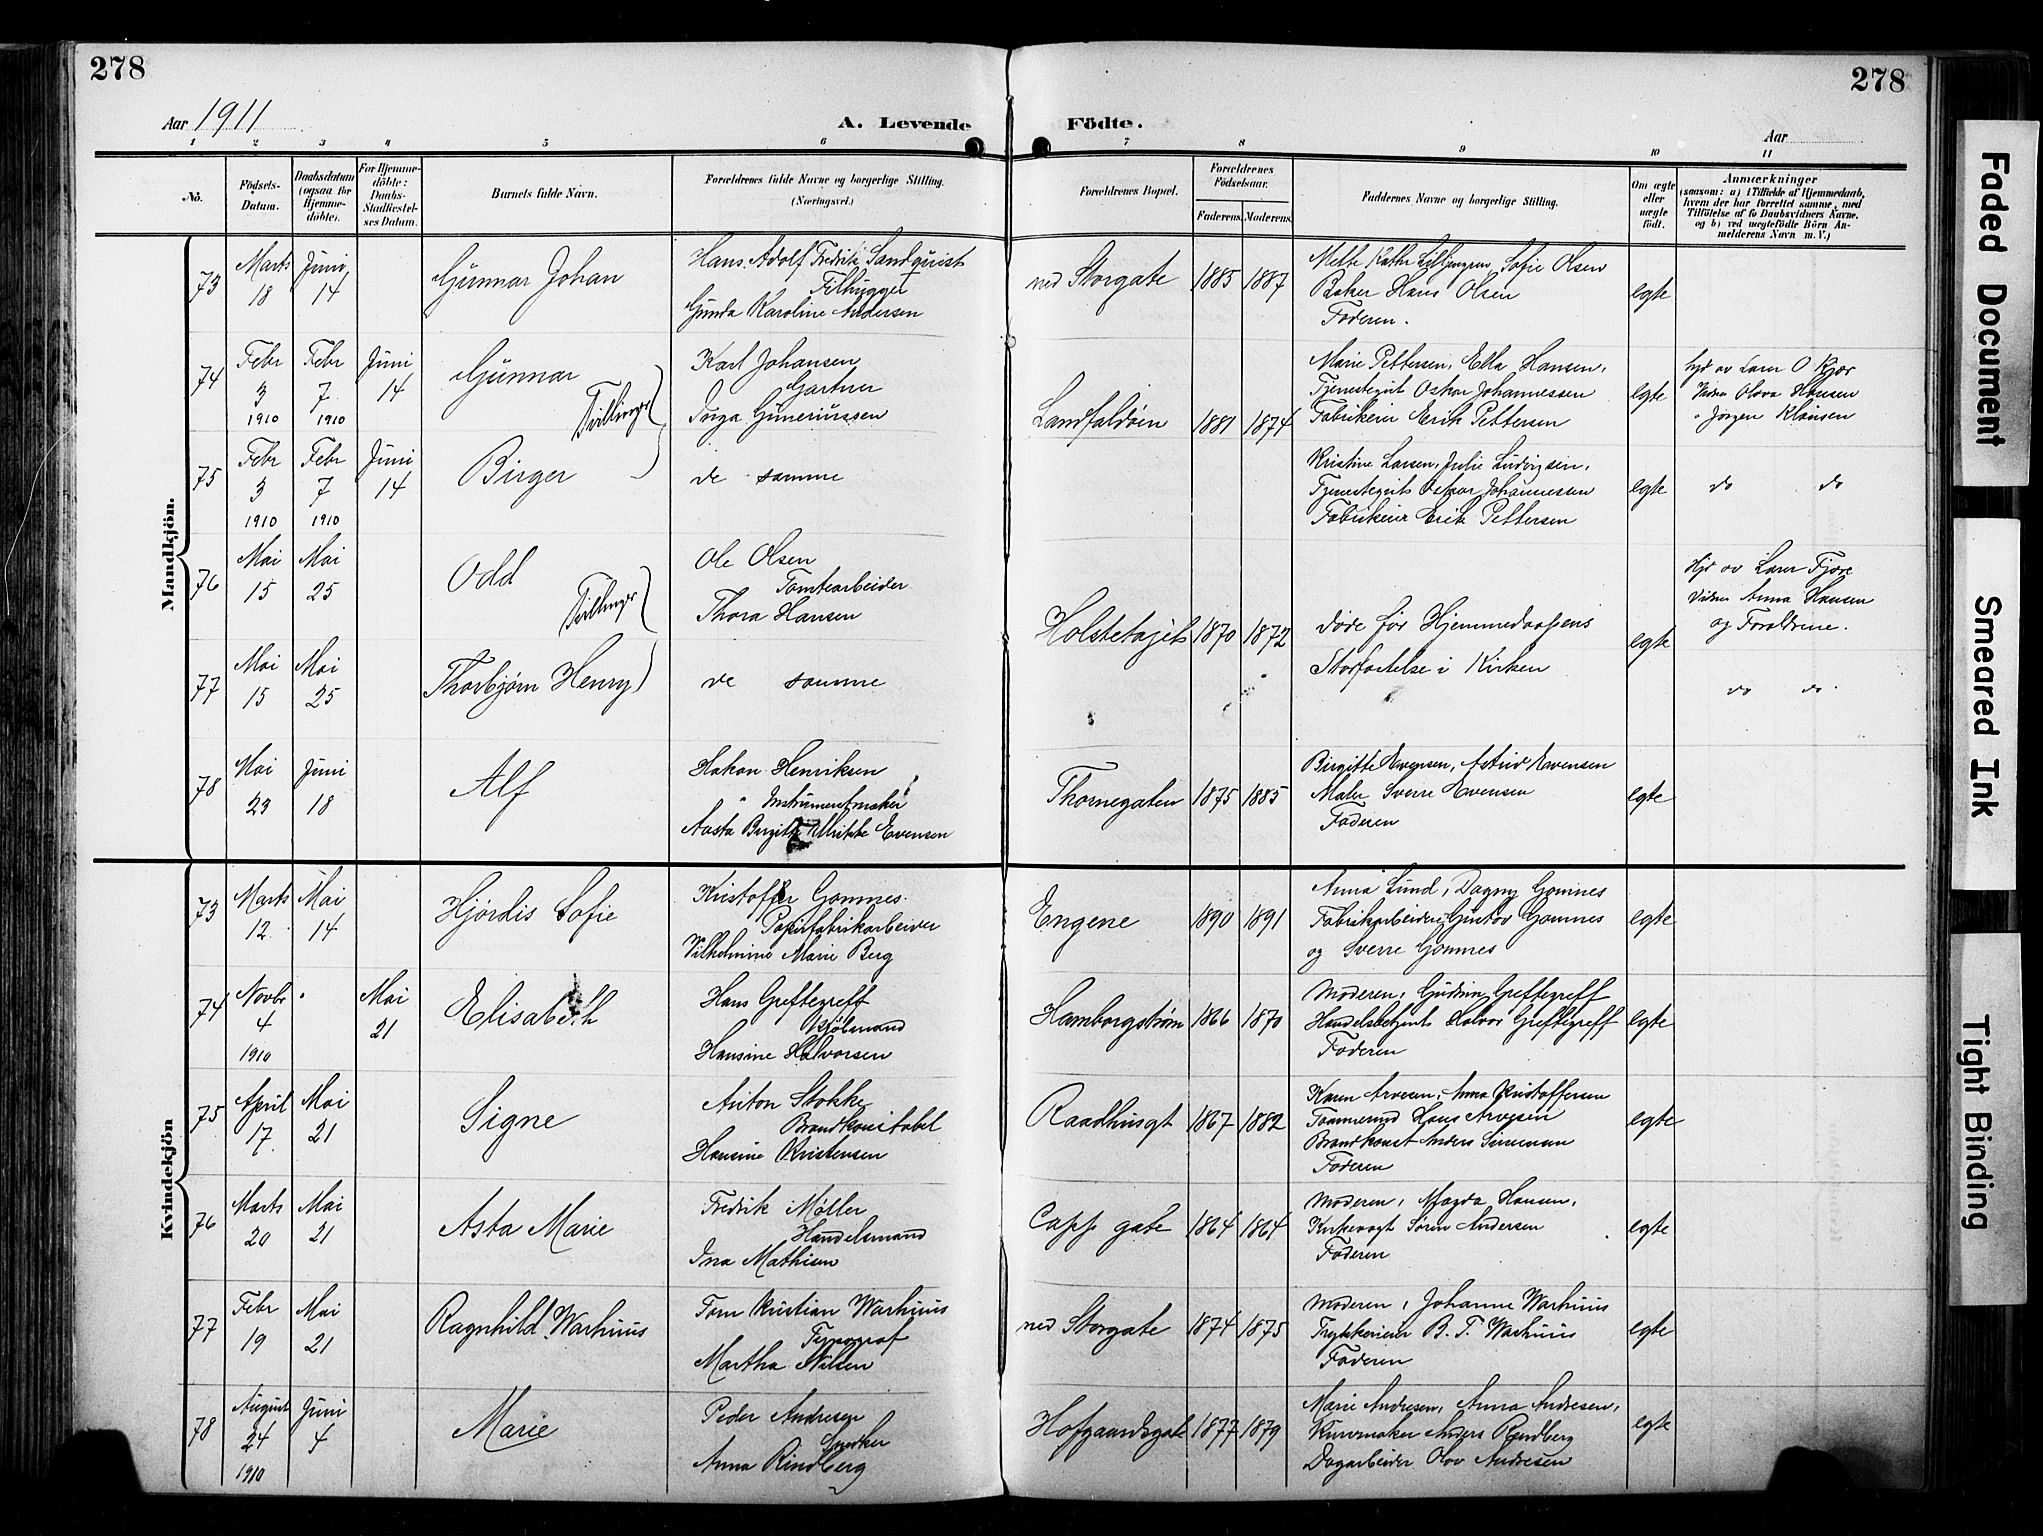 278
278
Aar 1911
A. Levende Födte.
Aar
1 2 3 4 5 6 7 8 9 10 11
No.
Födsels-Datum.
Daabsdatum (ogsaa for Hjemme-döbte).
For Hjemme-döbte: Daabs-Stadfæstel-ses Datum.
Barnets fulde Navn.
Forældrenes fulde Navne og borgerlige Stilling.
(Næringsvei.)
Forældrenes Bopæl.
Forældrenes Födselsaar.
Faderens. Moderens.
Faddernes Navne og borgerlige Stilling.
Om ægte eller uægte født.
Anmærkninger
(saasom: a) i Tilfælde af Hjemmedaab, hvem der har forrettet samme, med Tilföielse af to Daabsvidners Navne, og b) ved uegtefödte Börn An-melderens Navn m. V.)
Mandkjön.
73 Marts 18 Juni 14 Gunnar Johan
Hans Adolf Fredrik Sandquist
Filhugger
Gunda Karoline Andersen
ned Storgate 1885 1887
Sofie Olsen
Baker Hans Olsen
Faderen.
egte
74 Febr 3 1910 Febr 7 1910 Juni 14 Gunnar
Tvillinger
Karl Johansen
Gartner
Inga Guneriussen
Landfaldøien 1881 1874
Marie Pettersen, Ella Hansen,
Tjenestegut Oskar Johannessen
Fabrikeier Erik Pettersen
egte
hjd av Lærer O Kjær
Vidne Olava Hansen
" Jørgen Klausen
75 Febr 3 1910 Febr 7 1910 Juni 14 Birger
de samme
Kristine Larsen, Julie Ludvigsen,
Tjenestegut Oskar Johannessen
Fabrikeier Erik Pettersen
egte
do do
76 Mai 15 Mai 25 Odd
Tvillinger
Ole Olsen
Tomtearbeider
Thora Hansen
1870 1872
døde før Hjemmedaabens
Stadfæstelse i Kirken
egte
Hjd av Lærer
Vidner Anna Hansen
og Forældrene.
77 Mai 15 Mai 25 Thorbjørn Henry
de samme
do do
78 Mai 23 Juni 18 Alf
Hakon Henriksen
Instrumentmaker
Aasta Birgitte Ulrikke Evensen
Thornegaten 1875 1885
Birgitte Evensen, Astrid Evensen
Maler Sverre Evensen
Faderen
egte
Kvindekjön
73 Marts 12 Mai 14 Hjørdis Sofie
Kristoffer Gomnes
Papirfabrikarbeider
Vilhelmine Marie Berg
Engene 1890 1891
Anna Lund, Dagny Gomnes
Fabrikarbeidere Gustav Gomnes
og Sverre Gomnes
egte
74 Novbr 4 1910 Mai 21 Elisabeth
Hans Greftegreff
Kjølmand
Hansine Halvorsen
Hamborgstrøm 1866 1870
Moderen, Gudrun Greftegreff
Handelsbetjent Halvor Greftegreff
Faderen
egte
75 April 17 Mai 21 Signe
Anton Stokke
Brandkonstabel
Hansine Kristensen
Raadhusgt 1867 1882
Karen Arvesen, Anna Kristoffersen
Tømmermd Hans Arvesen
Brandkonst Anders Simensen
Faderen
egte
76 Marts 20 Mai 21 Asta Marie
Fredrik Møller
Handelsmand
Ina Mathisen
Capp. gate 1864 1864
Moderen, Magda Hansen,
Kirkevagt Søren Andersen
Faderen
egte
77 Febr 19 Mai 21 Ragnhild Warhuus
Tom Kristian Warhuus
Typograf
Martha Nilsen
ned Storgate 1874 1875
Moderen, Johanne Warhuus
Trykkerieier B. T. Warhuus
Faderen
egte
78 August 24 1910 Juni 4 Marie
Peder Andresen
Snedker
Anna Rindberg
Hofgaardsgate 1877 1879
Marie Andresen, Anna Andresen,
Kurvmaker Anders Rindberg
Dagarbeider Olav Andresen
egte
Faded Document
Smeared Ink
Tight Binding